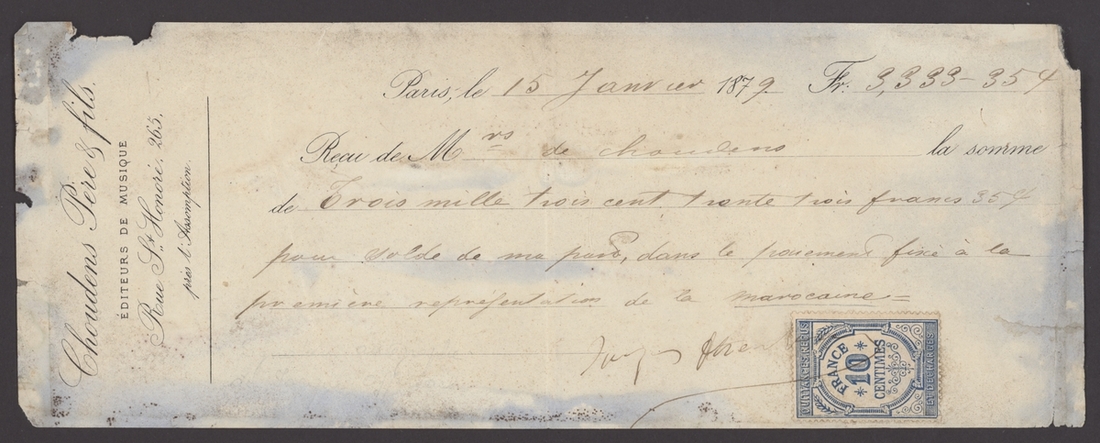 Choudens Père & fils.
ÉDITEURS DE MUSIQUE
Rue St. Honoré. 265.
près l'Assomption.
Paris, le 15 Janvier 1879. Fr: 3,333-35 c/
Reçu de Mrs de choudens la somme
de Trois mille trois cent trente trois francs 35 c/
pour solde de ma part, dans le paiement fixé à la
première représentation de la marocaine =
QUITTANCES REÇUS
FRANCE
10
CENTIMES
ET DECHARGES